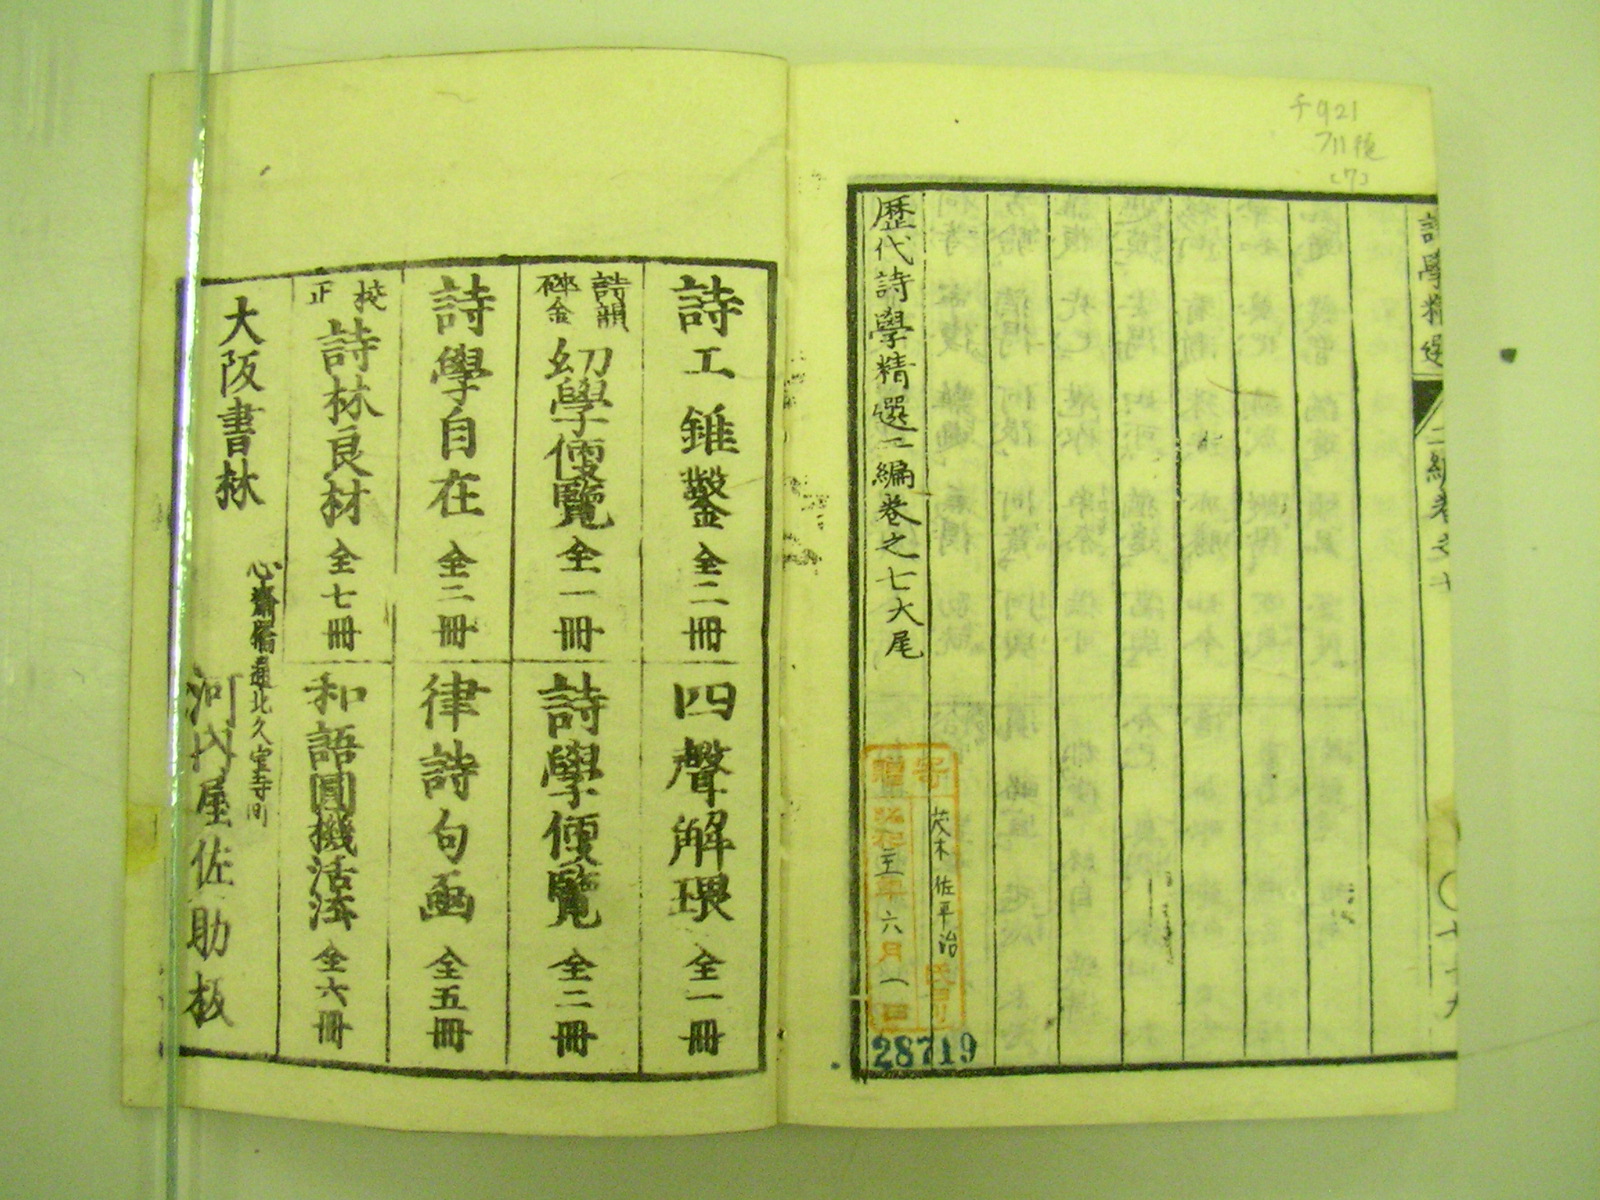 千921
711後
(7)
詩學精選
二編卷之七
七十九
歴代詩學精選二編卷之七大尾
寄贈
茂木佐平治
昭和三年六月一日
28719
詩工錐鑿 全二冊
四聲解環 全一冊
詩韻
碎金
幼學便覽 全一冊
詩學便覽 全二冊
詩學自在 全二冊
律詩句函 全五冊
校正
詩林良材 全七冊
和語圓機活法 全六冊
大阪書林
心齋橋通北久宝寺間
河内屋佐助板